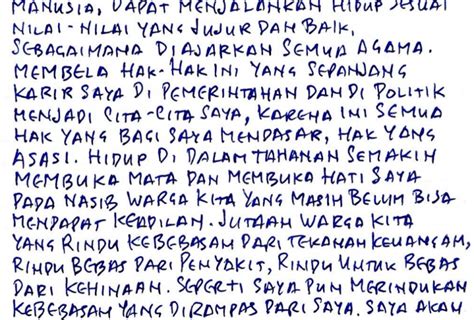 MANUSIA, DAPAT MENJALANKAN HIDUP SESUAI
NILAI-NILAI YANG JUJUR DAN BAIK,
SEBAGAIMANA DIAJARKAN SEMUA AGAMA.
MEMBELA HAK-HAK INI YANG SEPANJANG
KARIR SAYA DI PEMERINTAHAN DAN DI POLITIK
MENJADI CITA-CITA SAYA, KARENA INI SEMUA
HAK YANG BAGI SAYA MENDASAR, HAK YANG
ASASI. HIDUP DI DALAM TAHANAN SEMAKIN
MEMBUKA MATA DAN MEMBUKA HATI SAYA
PADA NASIB WARGA KITA YANG MASIH BELUM BISA
MENDAPAT KEADILAN. JUTAAN WARGA KITA
YANG RINDU KEBEBASAN DARI TEKANAN KEUANGAN,
RINDU BEBAS DARI PENYAKIT, RINDU UNTUK BEBAS
DARI KEHINAAN. SEPERTI SAYA PUN MERINDUKAN
KEBEBASAN YANG DIRAMPAS DARI SAYA. SAYA AKAN